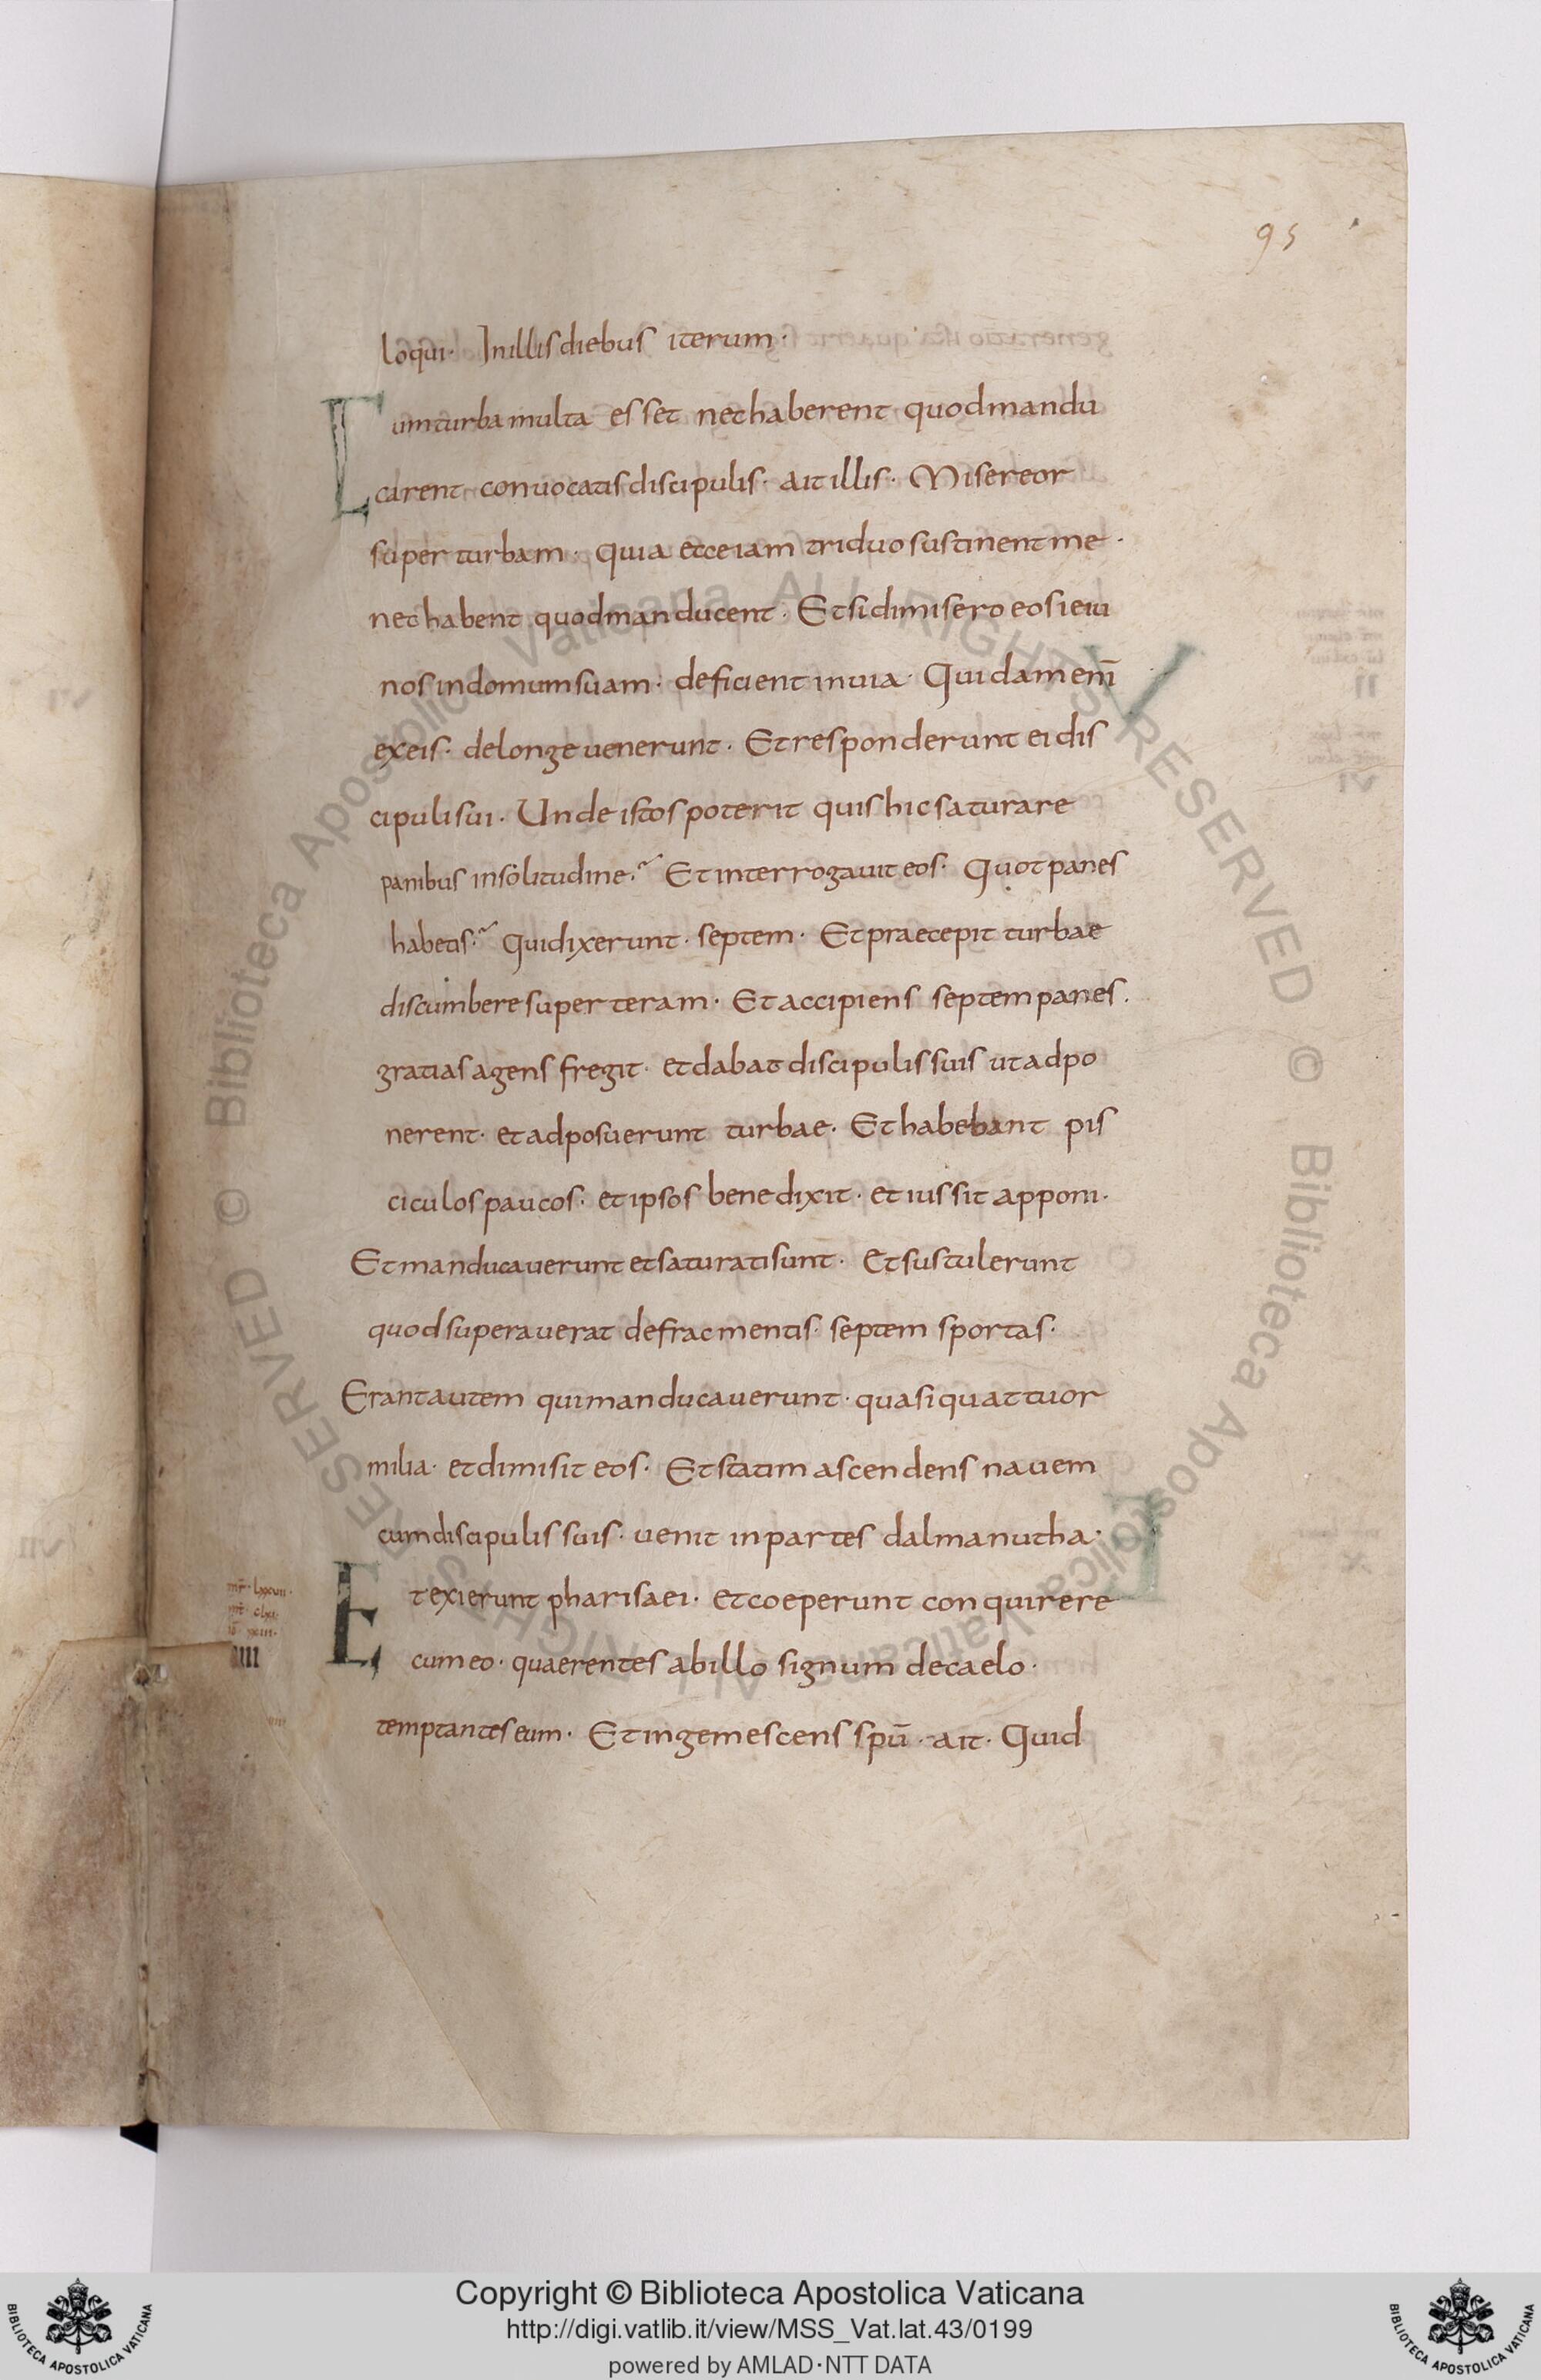 95
loqui · In illis diebus iterum ·
Cum turba multa esset nec haberent quod mandu
carent convocatis discipulis · ait illis · Misereor
super turbam · quia ecce iam triduo sustinent me ·
nec habent quod manducent · Et si dimisero eos ieiu
nos in domum suam · deficient in via · Quidam enī
ex eis · de longe venerunt · Et responderunt ei dis
cipuli sui · Unde istos poterit quis hic saturare
panibus in solitudine ? Et interrogavit eos · Quot panes
habetis ? Qui dixerunt · septem · Et praecepit turbae
discumbere super teram · Et accipiens septem panes ·
gratias agens fregit · et dabat discipulis suis ut adpo
nerent · et adposuerunt turbae · Et habebant pis
ciculos paucos · et ipsos benedixit · et iussit apponi ·
Et manducaverunt et saturati sunt · Et sustulerunt
quod superaverat de fracmentis · septem sportas ·
Erant autem qui manducaverunt · quasi quattuor
milia · et dimisit eos · Et statim ascendens navem
cum discipulis suis · venit in partes dalmanutha ·
Et exierunt pharisaei · et coeperunt conquirere
cum eo · quaerentes ab illo signum de caelo ·
temptantes eum · Et ingemescens spū · ait · Quid
mr̄ · lxxvii ·
IIII
© Biblioteca Apostolica Vaticana ALL RIGHTS RESERVED © Biblioteca Apostolica Vaticana ALL RIGHTS RESERVED
Copyright © Biblioteca Apostolica Vaticana
http://digi.vatlib.it/view/MSS_Vat.lat.43/0199
powered by AMLAD·NTT DATA
BIBLIOTECA APOSTOLICA VATICANA
BIBLIOTECA APOSTOLICA VATICANA